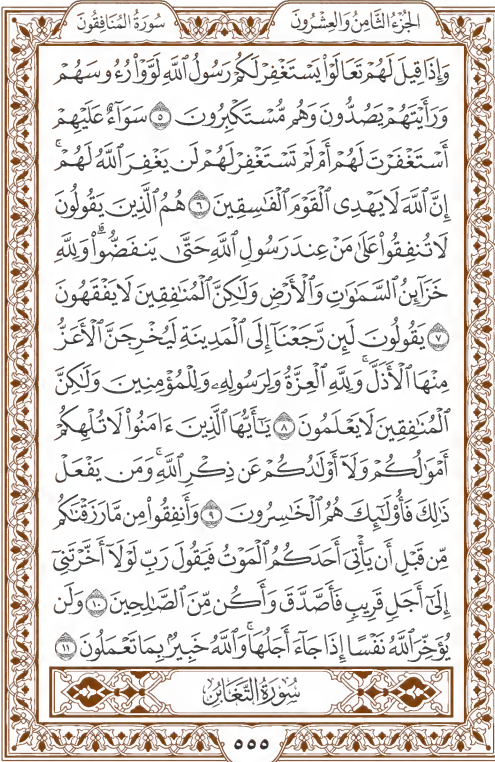 سُورَةُ المُنَافِقُونَ
الجُزْءُ الثَّامِنُ وَالعِشْرُونَ
وَإِذَا قِيلَ لَهُمْ تَعَالَوْا۟ يَسْتَغْفِرْ لَكُمْ رَسُولُ ٱللَّهِ لَوَّوْا۟ رُءُوسَهُمْ
وَرَأَيْتَهُمْ يَصُدُّونَ وَهُم مُّسْتَكْبِرُونَ ٥ سَوَآءٌ عَلَيْهِمْ
أَسْتَغْفَرْتَ لَهُمْ أَمْ لَمْ تَسْتَغْفِرْ لَهُمْ لَن يَغْفِرَ ٱللَّهُ لَهُمْۚ
إِنَّ ٱللَّهَ لَا يَهْدِى ٱلْقَوْمَ ٱلْفَٰسِقِينَ ٦ هُمُ ٱلَّذِينَ يَقُولُونَ
لَا تُنفِقُوا۟ عَلَىٰ مَنْ عِندَ رَسُولِ ٱللَّهِ حَتَّىٰ يَنفَضُّوا۟ۗ وَلِلَّهِ
خَزَآئِنُ ٱلسَّمَٰوَٰتِ وَٱلْأَرْضِ وَلَٰكِنَّ ٱلْمُنَٰفِقِينَ لَا يَفْقَهُونَ
٧ يَقُولُونَ لَئِن رَّجَعْنَآ إِلَى ٱلْمَدِينَةِ لَيُخْرِجَنَّ ٱلْأَعَزُّ
مِنْهَا ٱلْأَذَلَّۚ وَلِلَّهِ ٱلْعِزَّةُ وَلِرَسُولِهِۦ وَلِلْمُؤْمِنِينَ وَلَٰكِنَّ
ٱلْمُنَٰفِقِينَ لَا يَعْلَمُونَ ٨ يَٰٓأَيُّهَا ٱلَّذِينَ ءَامَنُوا۟ لَا تُلْهِكُمْ
أَمْوَٰلُكُمْ وَلَآ أَوْلَٰدُكُمْ عَن ذِكْرِ ٱللَّهِۚ وَمَن يَفْعَلْ
ذَٰلِكَ فَأُو۟لَٰٓئِكَ هُمُ ٱلْخَٰسِرُونَ ٩ وَأَنفِقُوا۟ مِن مَّا رَزَقْنَٰكُم
مِّن قَبْلِ أَن يَأْتِىَ أَحَدَكُمُ ٱلْمَوْتُ فَيَقُولَ رَبِّ لَوْلَآ أَخَّرْتَنِىٓ
إِلَىٰٓ أَجَلٍ قَرِيبٍ فَأَصَّدَّقَ وَأَكُن مِّنَ ٱلصَّٰلِحِينَ ١٠ وَلَن
يُؤَخِّرَ ٱللَّهُ نَفْسًا إِذَا جَآءَ أَجَلُهَاۚ وَٱللَّهُ خَبِيرٌۢ بِمَا تَعْمَلُونَ ١١
سُورَةُ التَّغَابُنِ
٥٥٥